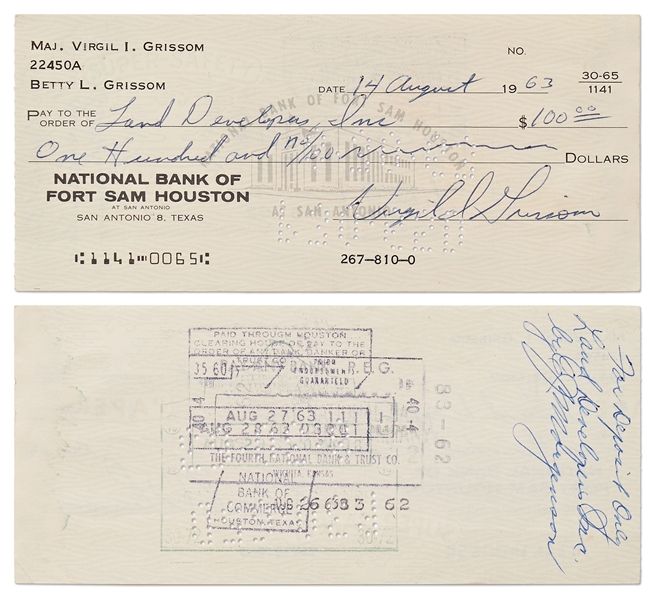 MAJ. VIRGIL I. GRISSOM
22450A
BETTY L. GRISSOM
NO.
DATE 14 August 1963
30-65
1141
PAY TO THE
ORDER OF Land Developers, Inc $100 00
One Hundred and no/100 DOLLARS
NATIONAL BANK OF FORT SAM HOUSTON
AT SAN ANTONIO
NATIONAL BANK OF
FORT SAM HOUSTON
AT SAN ANTONIO
SAN ANTONIO 8, TEXAS
Virgil I. Grissom
1141 0065
267-810-0
PAID THROUGH HOUSTON
CLEARING HOUSE OR PAY TO THE
ORDER OF ANY BANK, BANKER OR
TRUST CO.
PRIOR
ENDORSEMENTS
GUARANTEED
R.E.G.
40 4
40-4
83-62
AUG 27 63
AUG 28 63
THE FOURTH NATIONAL BANK & TRUST CO.
WICHITA, KANSAS
NATIONAL
BANK OF
COMMERCE
HOUSTON, TEXAS
AUG 26 63
62
For Deposit Only
Land Developers Inc.